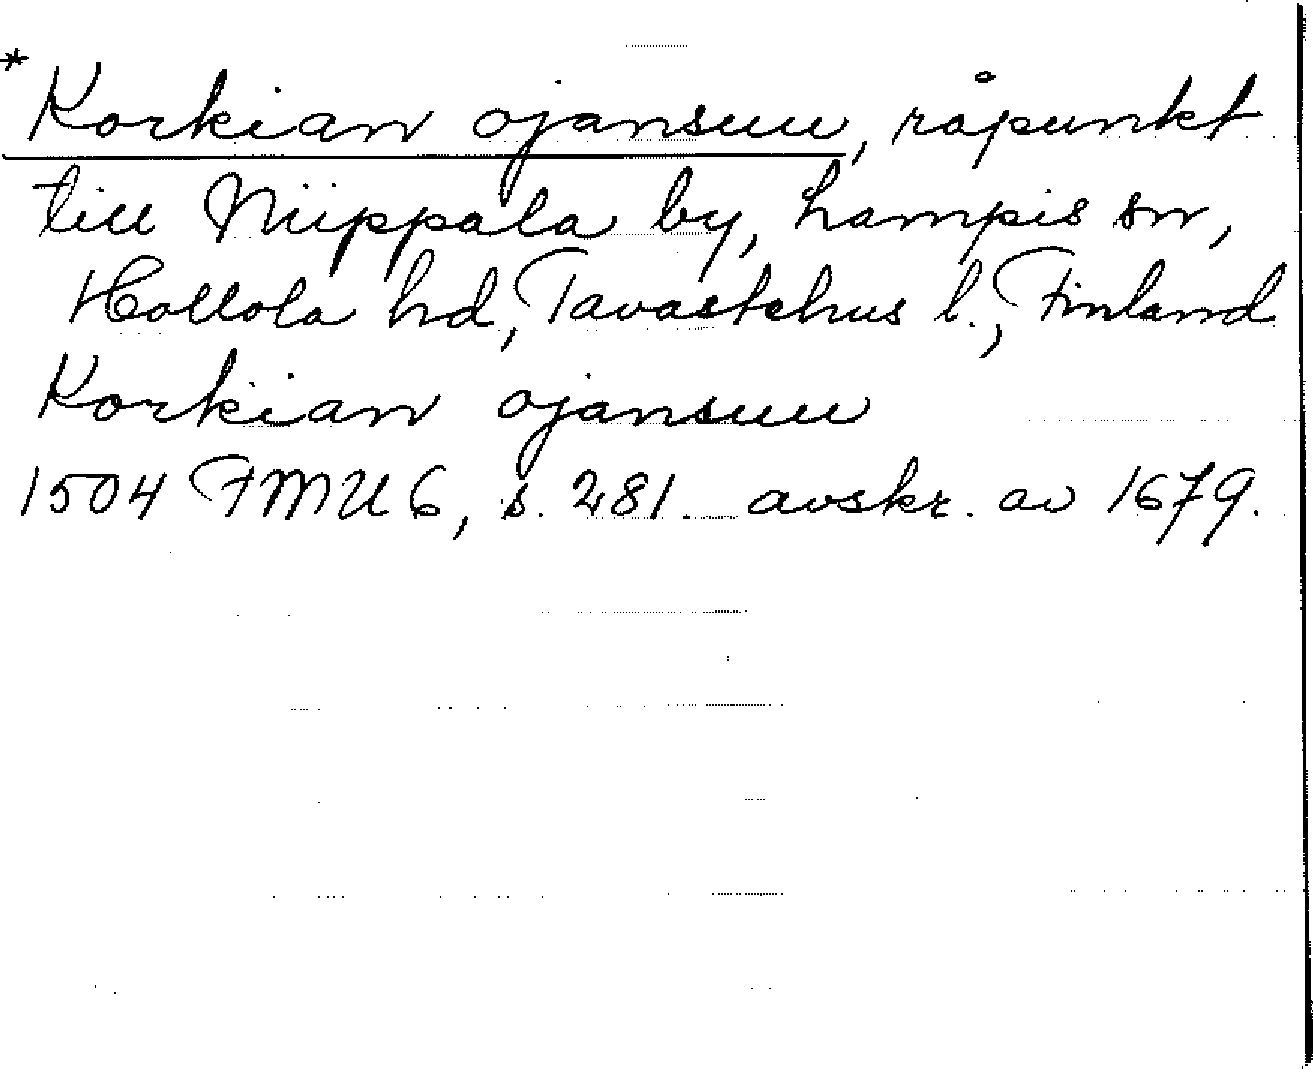 *
Korkian ojansuu, råpunkt
till Niippala by, Lampis sn,
Hollola hd, Tavastehus l., Finland
Korkian ojansuu
1504 FMU 6, s. 281 avskr. av 1679.